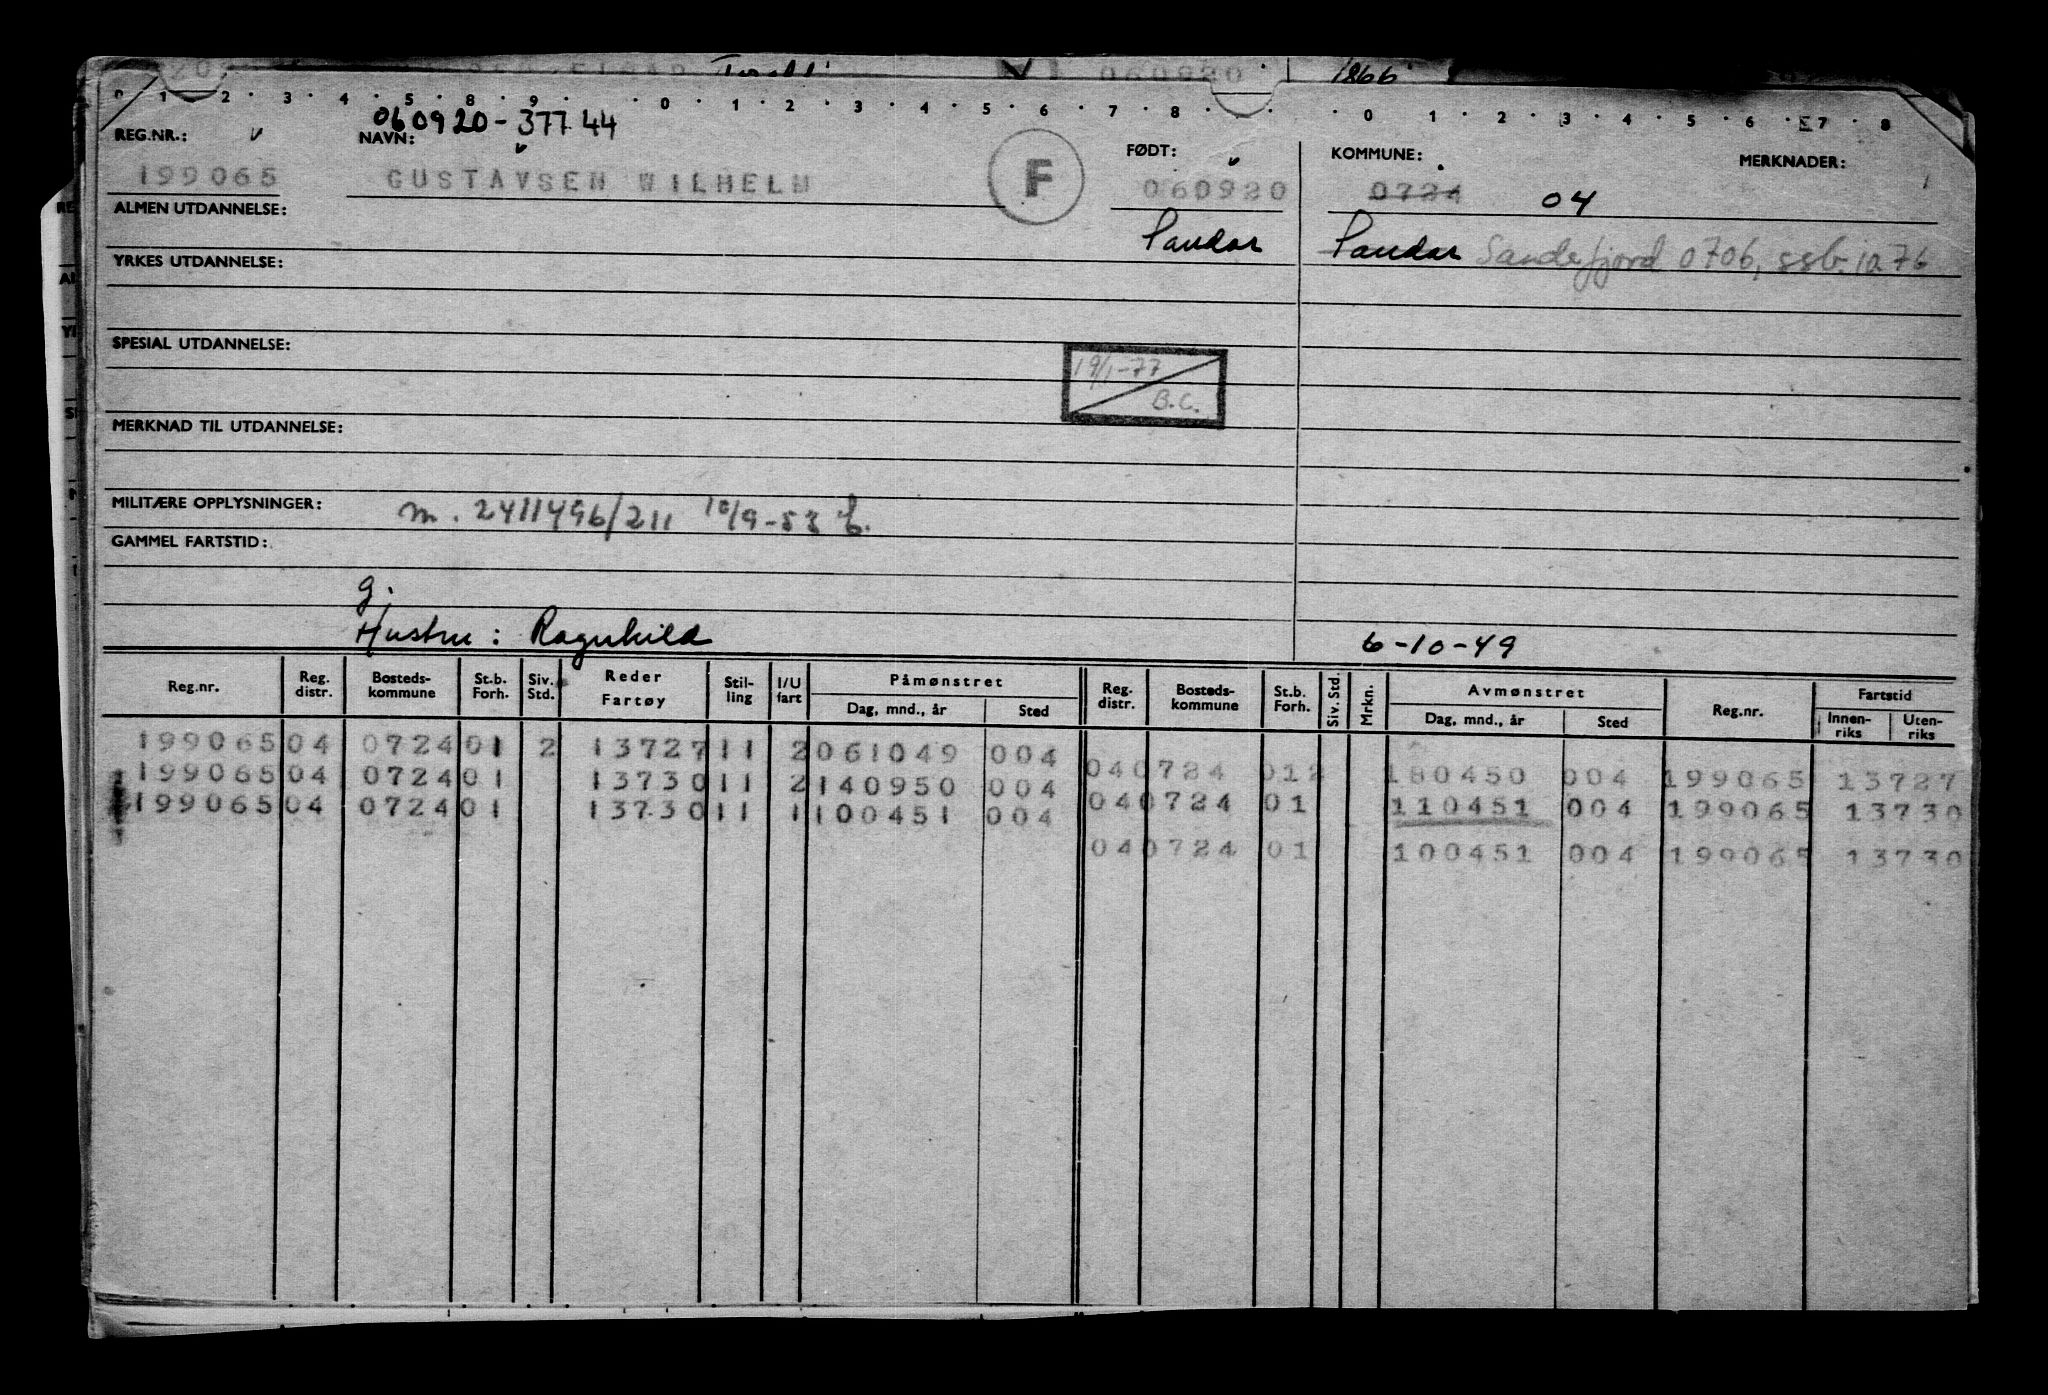 060920 1866
0 1 2 3 4 5 8 9 0 1 2 3 4 5 6 7 8 0 1 2 3 4 5 6 7 8
060920-37744
REG.NR.: NAVN: FØDT: KOMMUNE: MERKNADER:
199065 GUSTAVSEN WILHELM F 060920 0724 04
ALMEN UTDANNELSE: Sandar Sandar Sandefjord 0706, ssb. 10.76
YRKES UTDANNELSE:
SPESIAL UTDANNELSE:
19/1-77
B.C.
MERKNAD TIL UTDANNELSE:
MILITÆRE OPPLYSNINGER: m. 2411496/211 10/9-53
GAMMEL FARTSTID:
g.
Hustru: Ragnhild 6-10-49
Reg.nr. Reg. distr. Bosteds-kommune St.b. Forh. Siv. Std. Reder Fartøy Stil-ling I/U fart Påmønstret Dag, mnd., år Sted Reg. distr. Bosteds-kommune St.b. Forh. Siv. Std. Mrkn. Avmønstret Dag, mnd., år Sted Reg.nr. Fartstid Innen-riks Uten-riks
199065 04 0724 01 2 13727 11 2 061049 004
040724 012 180450 004 199065 13727
199065 04 0724 01 13730 11 2 140950 004
040724 01 110451 004 199065 13730
199065 04 0724 01 13730 11 1 100451 004
040724 01 100451 004 199065 13730